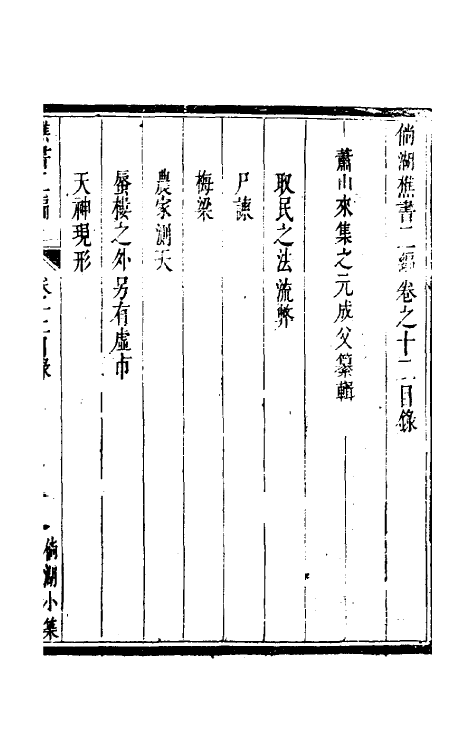 倘湖樵書二編卷之十二目錄
蕭山來集之元成父纂輯
取民之法流弊
尸諫
梅梁
農家測天
蜃樓之外另有虛市
天神現形
樵書二編
卷十二目錄
倘湖小集